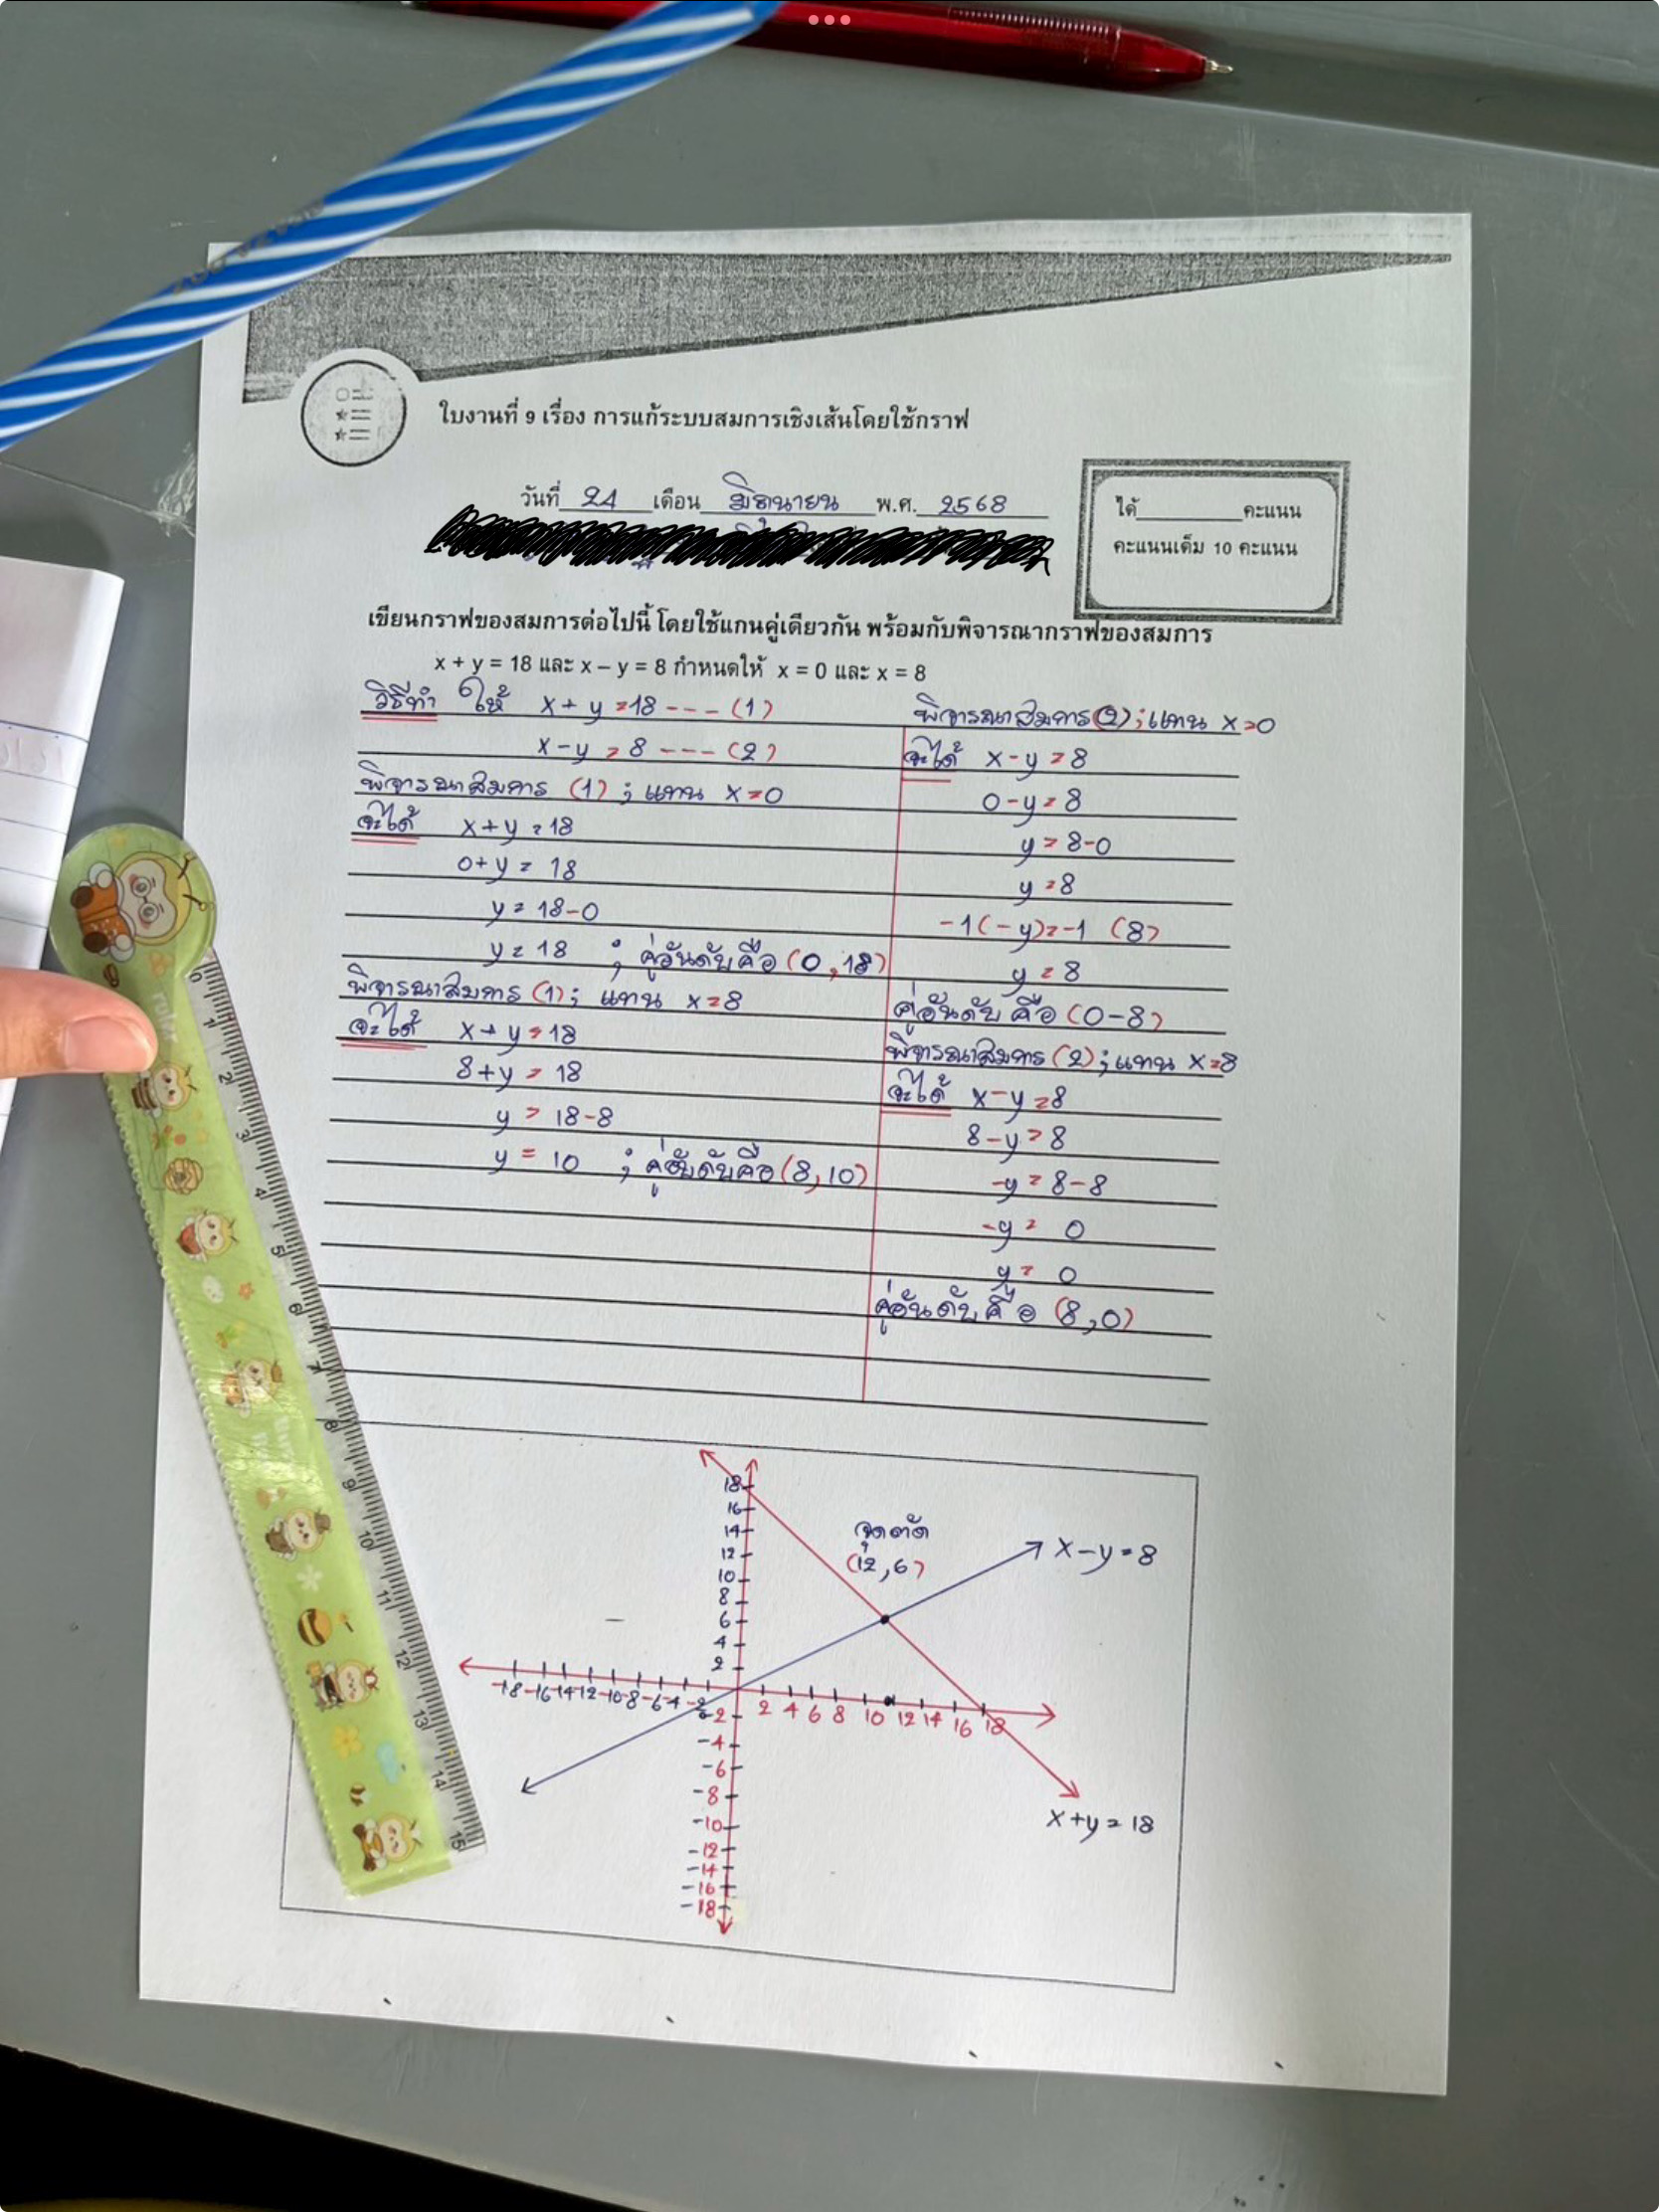 ใบงานที่ 9 เรื่อง การแก้ระบบสมการเชิงเส้นโดยใช้กราฟ
วันที่ 24 เดือน มิถุนายน พ.ศ. 2568
ได้ คะแนน
คะแนนเต็ม 10 คะแนน
เขียนกราฟของสมการต่อไปนี้ โดยใช้แกนคู่เดียวกัน พร้อมกับพิจารณากราฟของสมการ
x + y = 18 และ x – y = 8 กำหนดให้ x = 0 และ x = 8
วิธีทำ ให้ x + y = 18 --- (1)
x - y = 8 --- (2)
พิจารณาสมการ (1) ; แทน x = 0
จะได้ x + y = 18
0 + y = 18
y = 18 - 0
y = 18 ; คู่อันดับคือ (0, 18)
พิจารณาสมการ (1) ; แทน x = 8
จะได้ x + y = 18
8 + y = 18
y = 18 - 8
y = 10 ; คู่อันดับคือ (8, 10)
พิจารณาสมการ (2) ; แทน x = 0
จะได้ x - y = 8
0 - y = 8
y = 8 - 0
y = 8
-1 (-y) = -1 (8)
y = 8
คู่อันดับ คือ (0-8)
พิจารณาสมการ (2) ; แทน x = 8
จะได้ x - y = 8
8 - y = 8
-y = 8 - 8
-y = 0
y = 0
คู่อันดับคือ (8, 0)
18
16
14
12
10
8
6
4
2
จุดตัด
(12, 6)
x - y = 8
-18 -16 -14 -12 -10 -8 -6 -4 -2
2 4 6 8 10 12 14 16 18
-2
-4
-6
-8
-10
-12
-14
-16
-18
x + y = 18
0 1 2 3 4 5 6 7 8 9 10 11 12 13 14 15